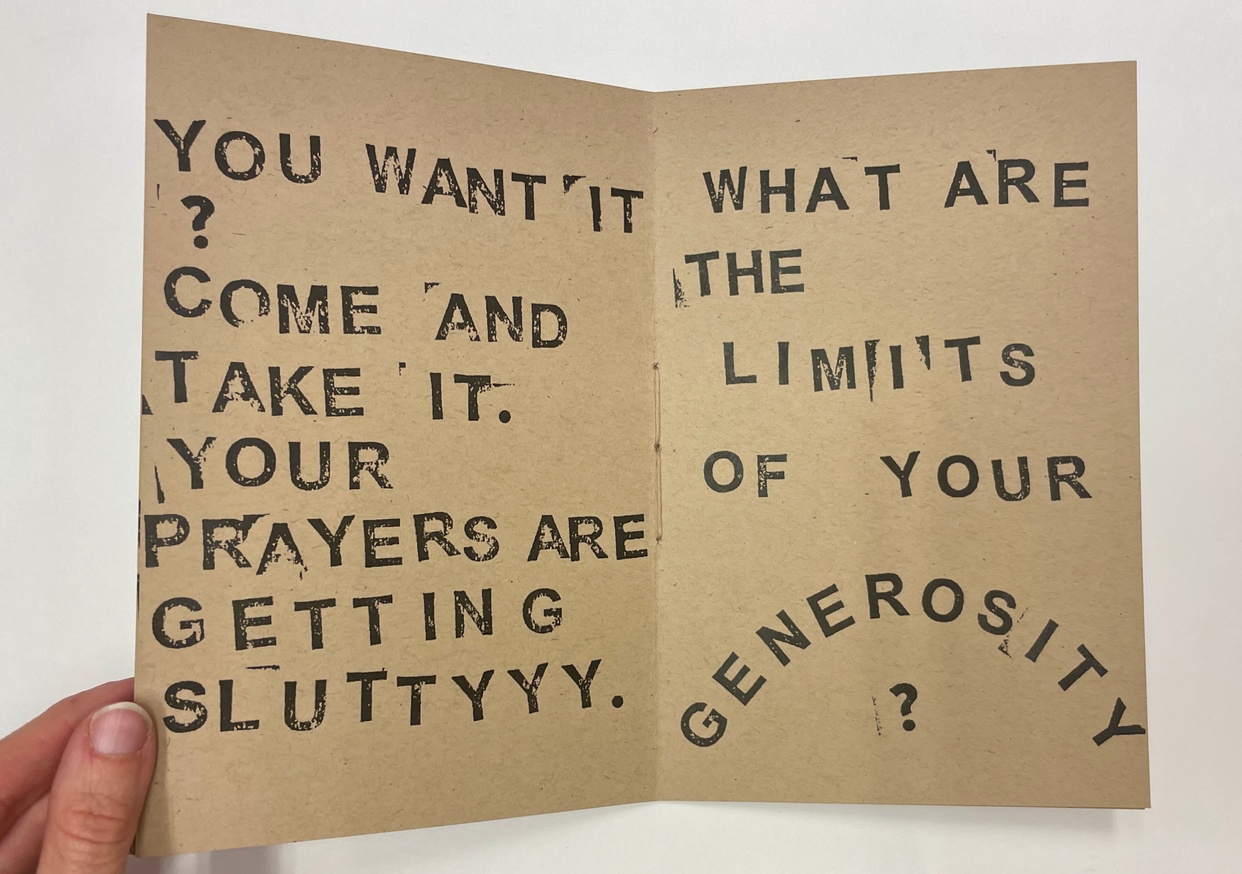 YOU WANT IT
?
COME AND
TAKE IT.
YOUR
PRAYERS ARE
GETTING
SLUTTYYY.
WHAT ARE
THE
LIMITS
OF YOUR
GENEROSITY
?